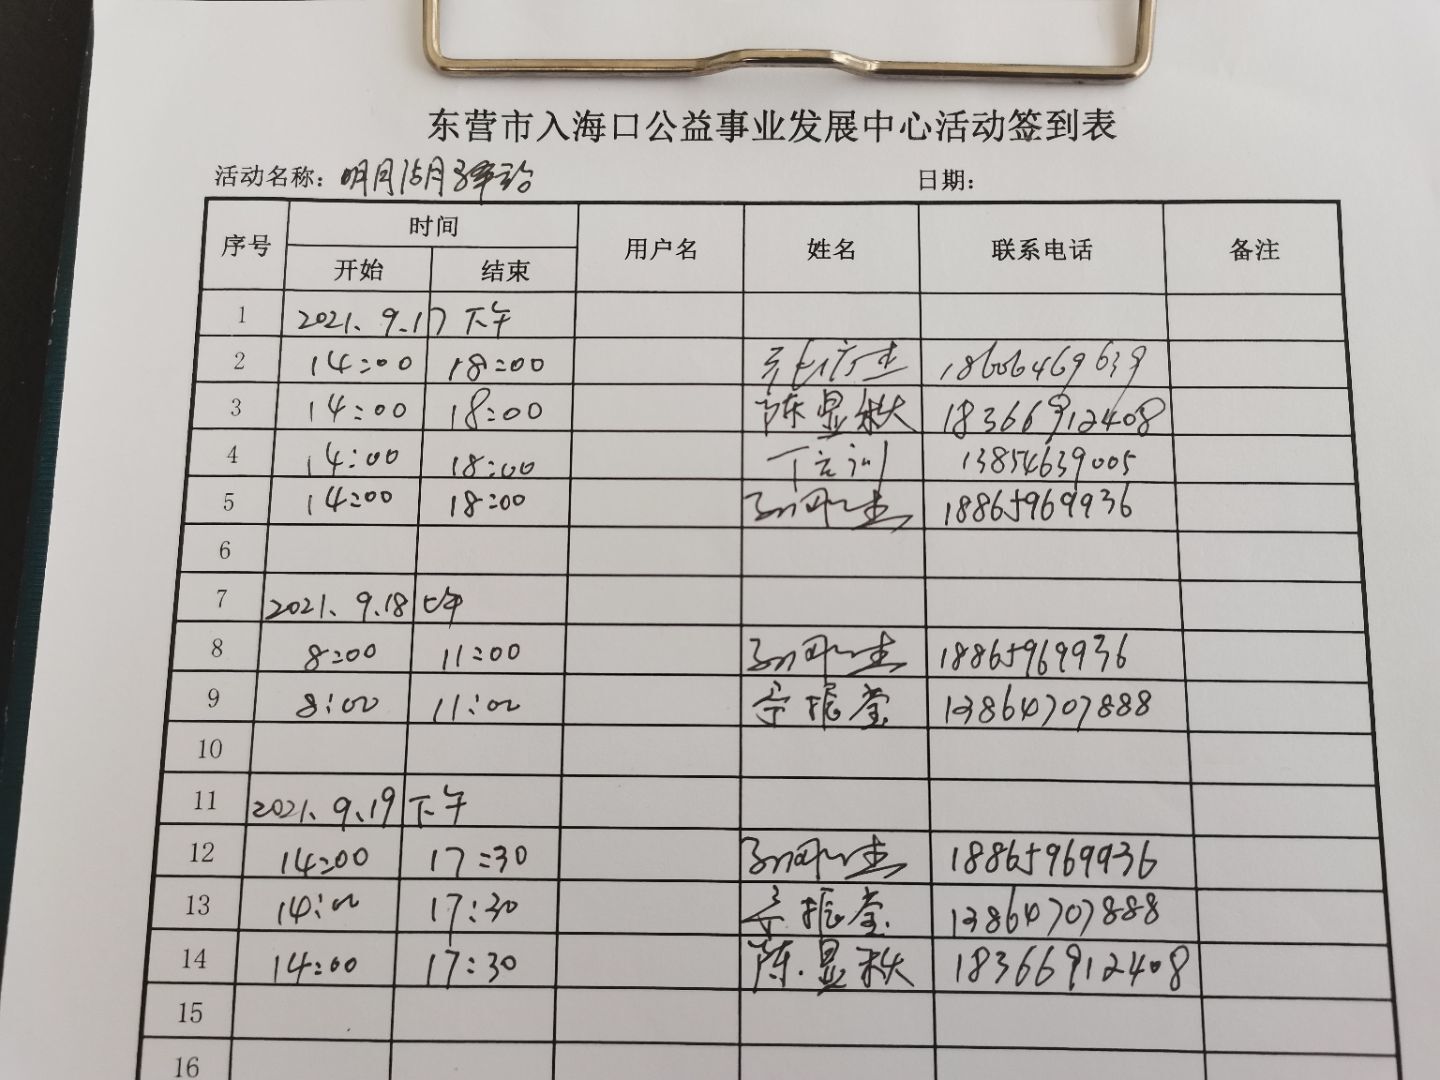 东营市入海口公益事业发展中心活动签到表
活动名称： 明月 日期：
序号 时间 用户名 姓名 联系电话 备注
开始 结束
1 2021、9、17 下午
2 14:00 18:00 18606469639
3 14:00 18:00 陈显秋 18366912408
4 14:00 18:00 13854639005
5 14:00 18:00 18865969936
6
7 2021、9、18 上午
8 8:00 11:00 18865969936
9 8:00 11:00 振堂 13864707888
10
11 2021、9、19 下午
12 14:00 17:30 18865969936
13 14:00 17:30 振堂 13864707888
14 14:00 17:30 陈显秋 18366912408
15
16